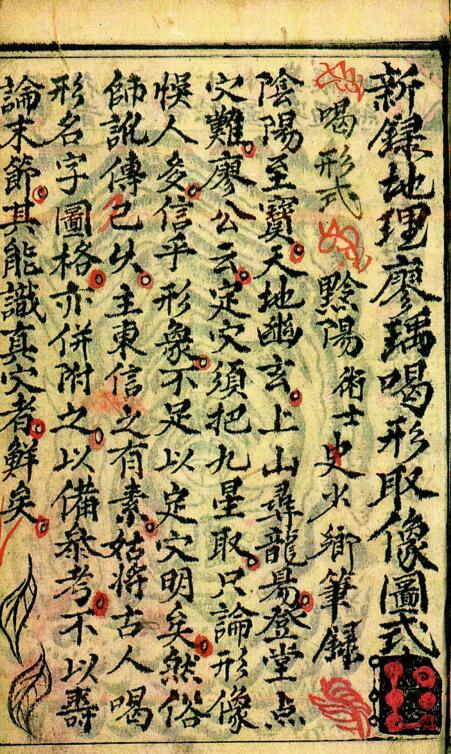 新錄地理廖瑀喝形取像圖式
喝形式 黔陽術士史火鄉筆錄
陰陽至寶天地幽玄上山尋龍易登堂点
穴難廖公云定穴須把九星取只論形像
悮人多信乎形象不足以定穴明矣然俗
師訛傳已久主東信之有素姑將古人喝
形名字圖格亦併附之以備叅考不以壽
論末節其能識真穴者鮮矣